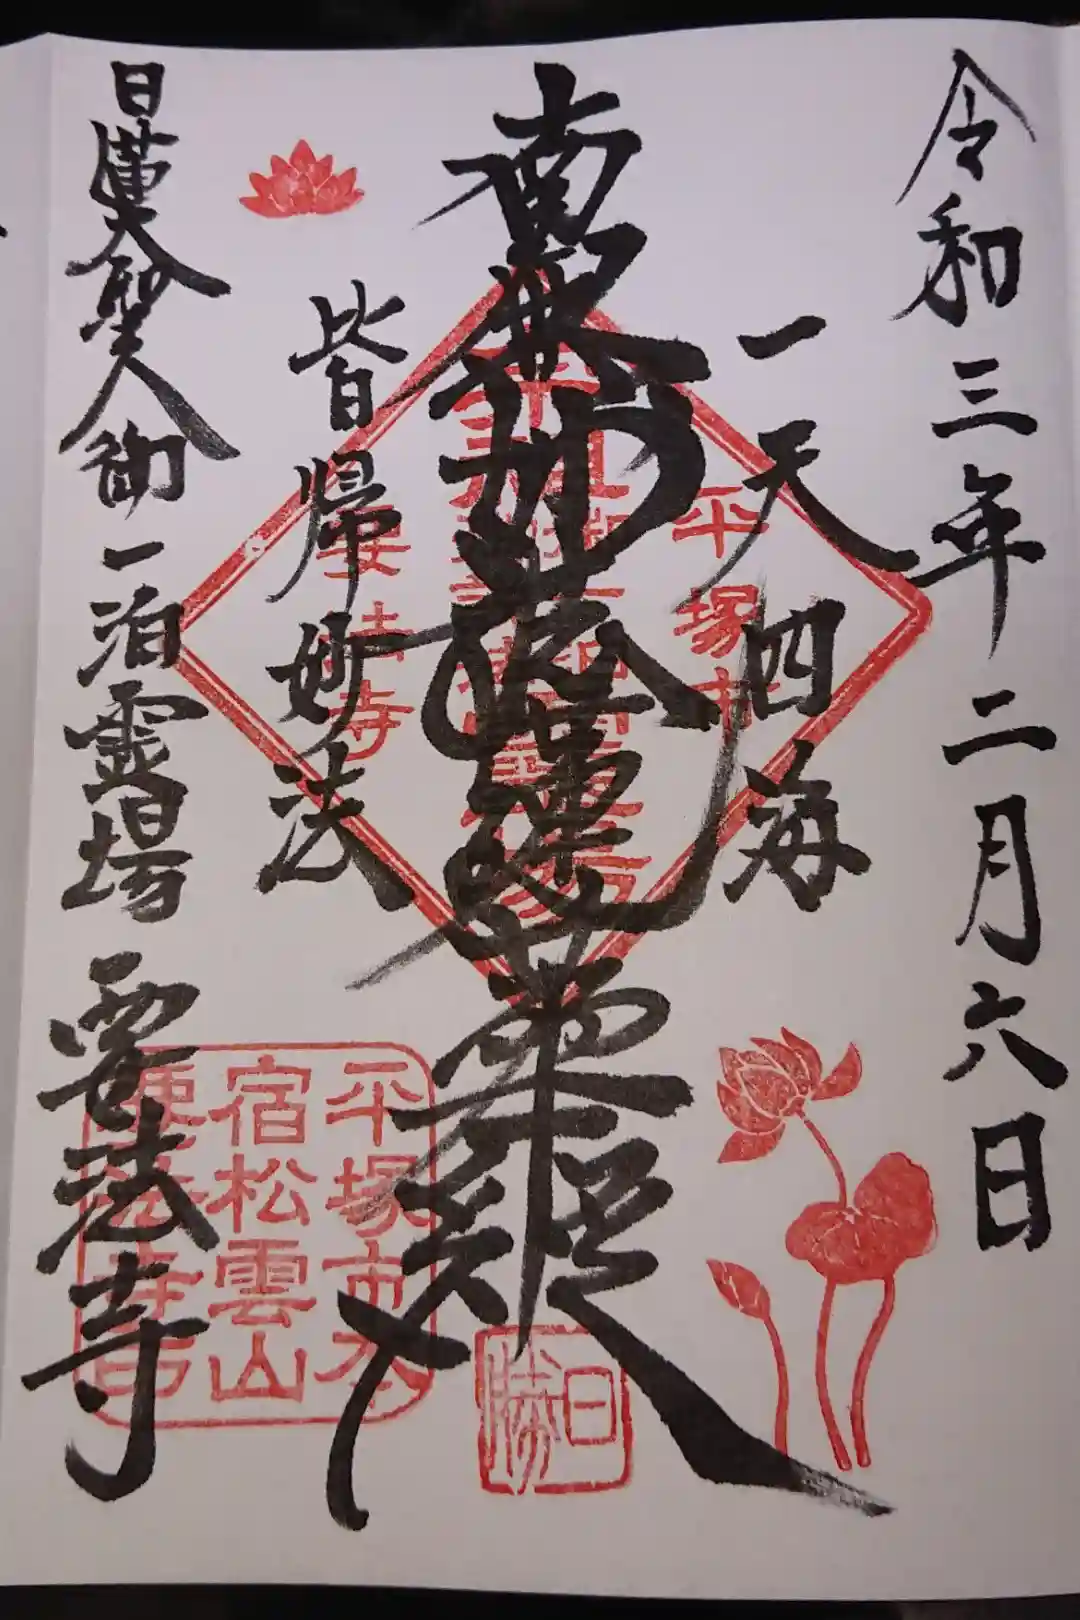 令和三年二月六日
一天四海
南無妙法蓮華経
皆帰妙法
日蓮大聖人御一泊霊場 要法寺
平塚
要法寺
平塚市本
宿松雲山
要法寺印
日
勝